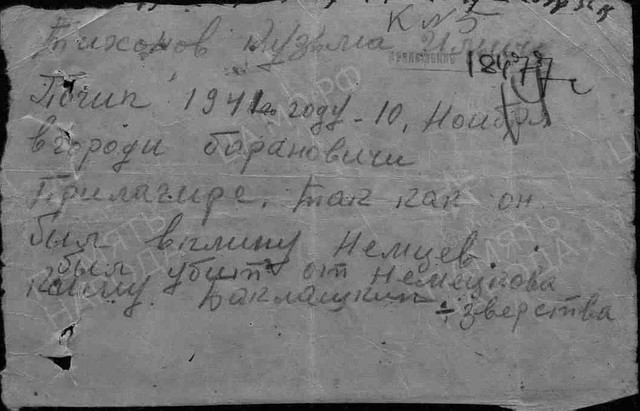 К №5
Тихонов Кузьма Ильич
18477
Погип 1941 го году - 10, Ноября
в городи барановичи
Прилагире. так как он
был вплину Немцев.
был убит от немецкова
Баклашкин ÷ зверства